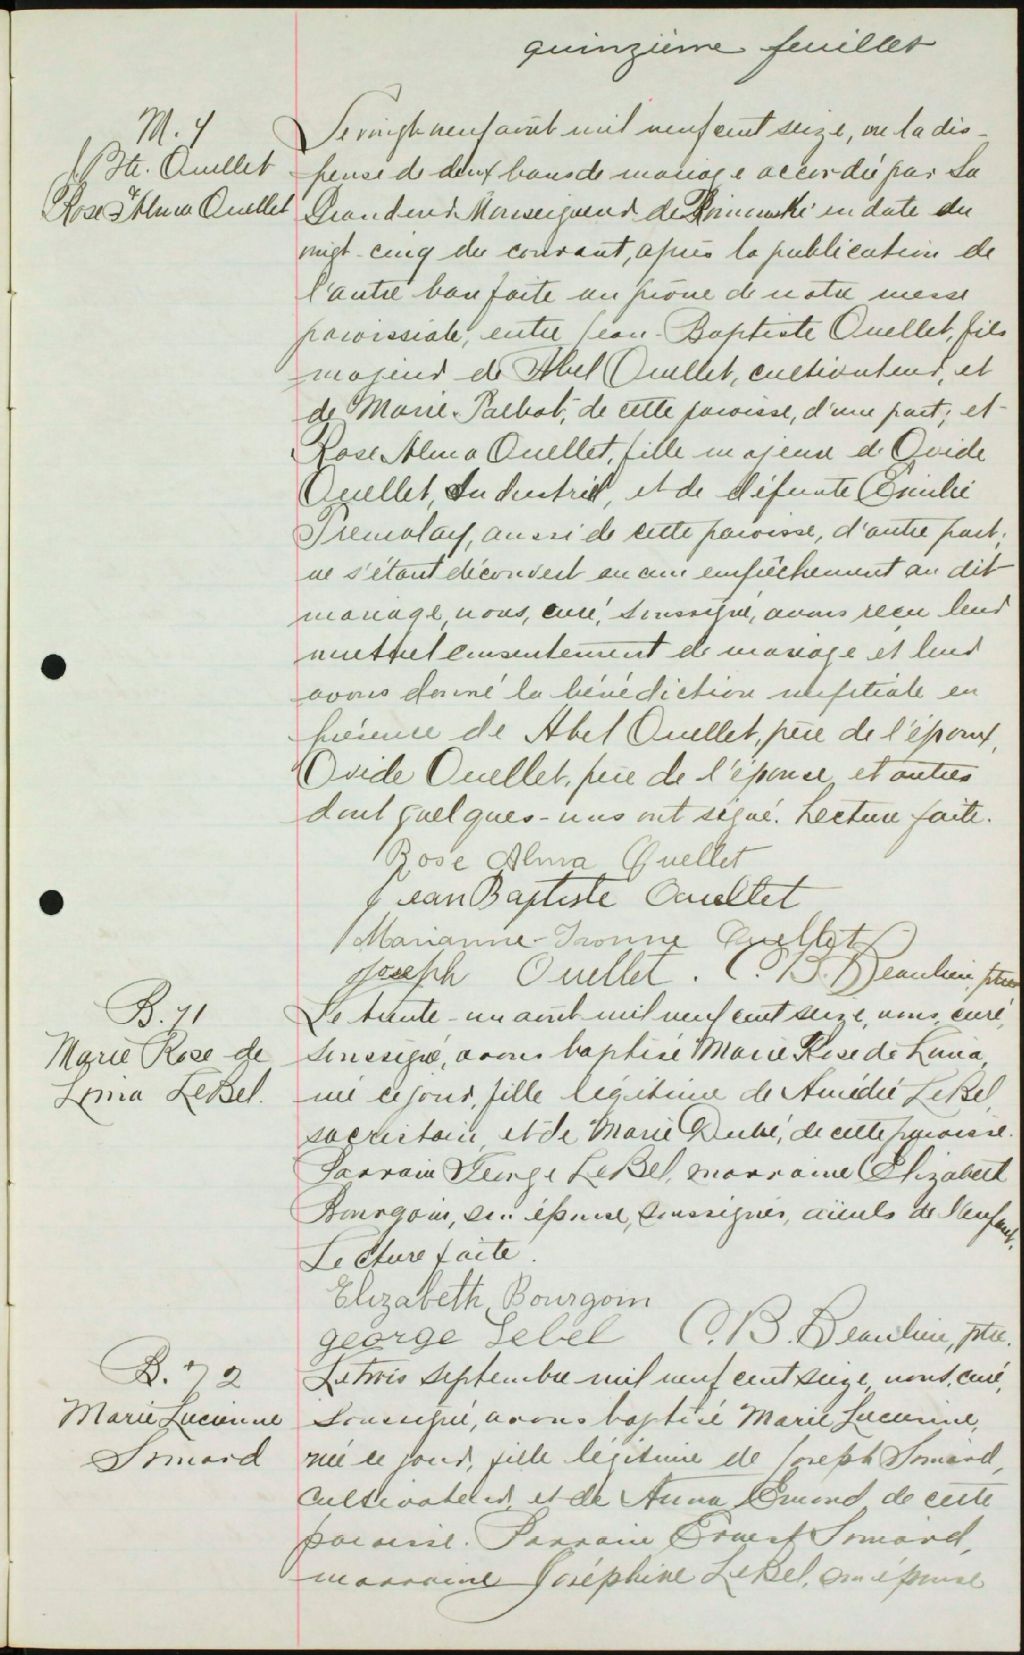 quinzième feuillet
M. 7
J Bte. Ouellet
&
Rose Alma Ouellet
Le vingt neuf août mil neuf cent seize, vu la dis-
pense de deux bans de mariage accordée par Sa
Grandeur Monseigneur de Rimouski en date du
vingt-cinq du courant, après la publication de
l'autre ban faite au prône de notre messe
paroissiale, entre Jean-Baptiste Ouellet, fils
majeur de Abel Ouellet, cultivateur, et
de Marie Talbot, de cette paroisse, d'une part; et
Rose Alma Ouellet, fille majeure de Ovide
Ouellet, Industriel, et de défunte Emilie
Tremblay, aussi de cette paroisse, d'autre part;
ne s'étant découvert aucun empêchement au dit
mariage, nous, curé, soussigné, avons reçu leur
mutuel consentement de mariage et leur
avons donné la bénédiction nuptiale en
présence de Abel Ouellet, père de l'époux,
Ovide Ouellet, père de l'épouse et autres
dont quelques-uns ont signé. Lecture faite.
Rose Alma Ouellet
Jean Baptiste Ouellet
Marianne-Ivonne Ouellet
Joseph Ouellet. C. B. Beaulieu, ptre
B. 71
Marie Rose de
Lima LeBel.
Le trente-un août mil neuf cent seize, nous, curé,
soussigné, avons baptisé Marie Rose de Lima,
née ce jour, fille légitime de Amédée LeBel,
sacristain, et de Marie Dubé, de cette paroisse.
Parrain George LeBel, marraine Elizabeth
Bourgoin, son épouse, soussignés, aïeuls de l'enfant.
Lecture faite.
Elizabeth Bourgoin
george Lebel C. B. Beaulieu, ptre.
B. 72
Marie Lucienne
Simard
Le trois septembre mil neuf cent seize, nous, curé,
soussigné, avons baptisé Marie Lucienne,
née ce jour, fille légitime de Joseph Simard,
cultivateur, et de Anna Emond de cette
paroisse. Parrain Ernest Simard,
marraine Joséphine LeBel, son épouse